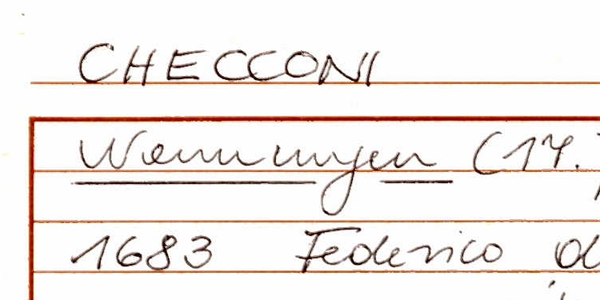 CHECCONI
Nennungen (17.
1683 Federico